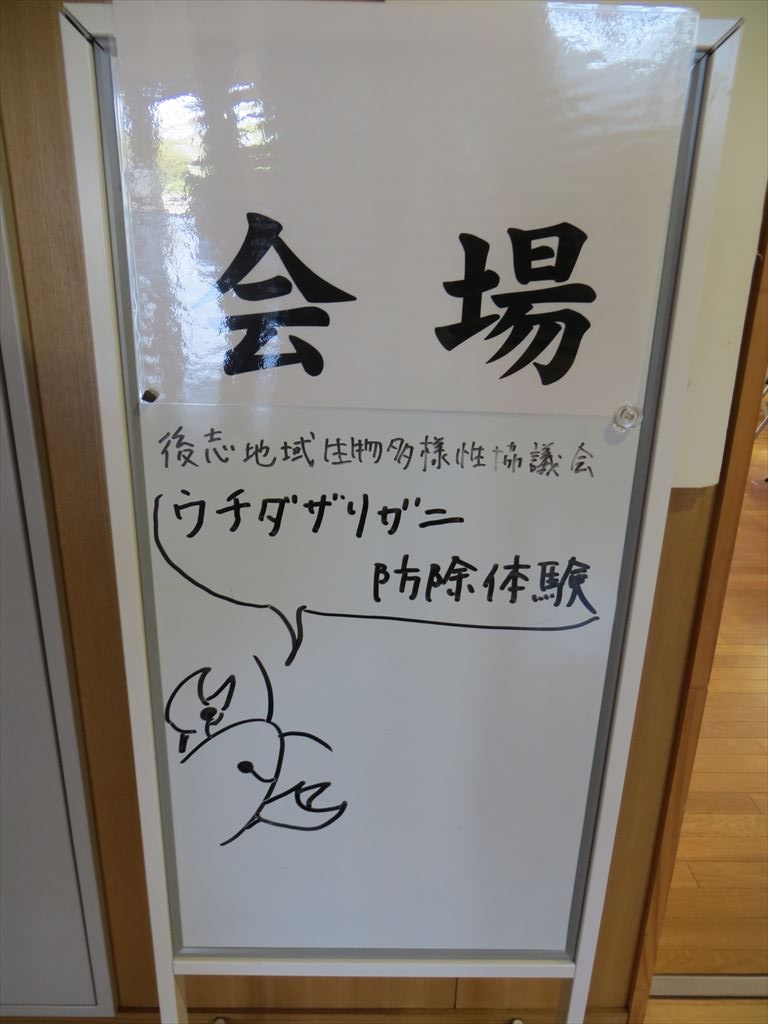 会場
後志地域生物多様性協議会
ウチダザリガニ
防除体験